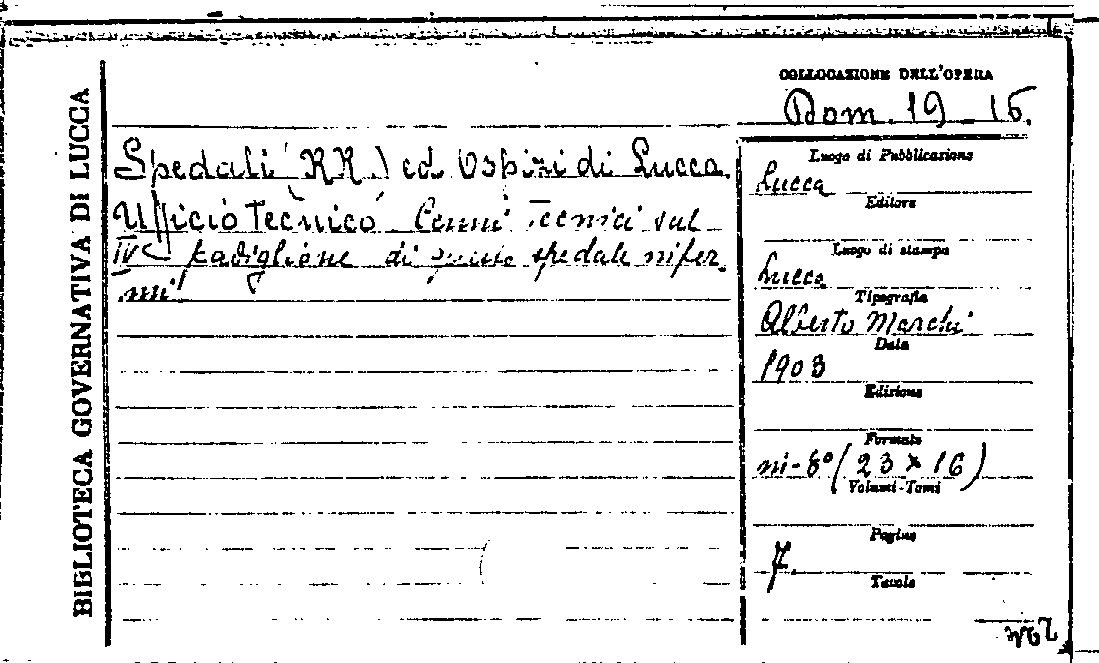 BIBLIOTECA GOVERNATIVA DI LUCCA
COLLOCAZIONE DELL'OPERA
Dom. 19 16.
Spedali (RR.) ed Ospizi di Lucca.
Ufficio Tecnico Cenni Tecnici sul
IV padiglione di spedale infer-
mi
Luogo di Pubblicazione
Lucca
Editore
Luogo di stampa
Lucca
Tipografia
Alberto Marchi
Data
1903
Edizione
Formato
in-8° (23 x 16)
Volumi-Tomi
Pagine
7.
Tavole